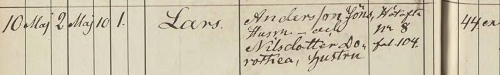 10 Maj 2 Maj 10 1. Lars. Andersson Jöns, 44 en
Husm. — och № 8
Nilsdotter Do- fol. 104.
rothea, hustru